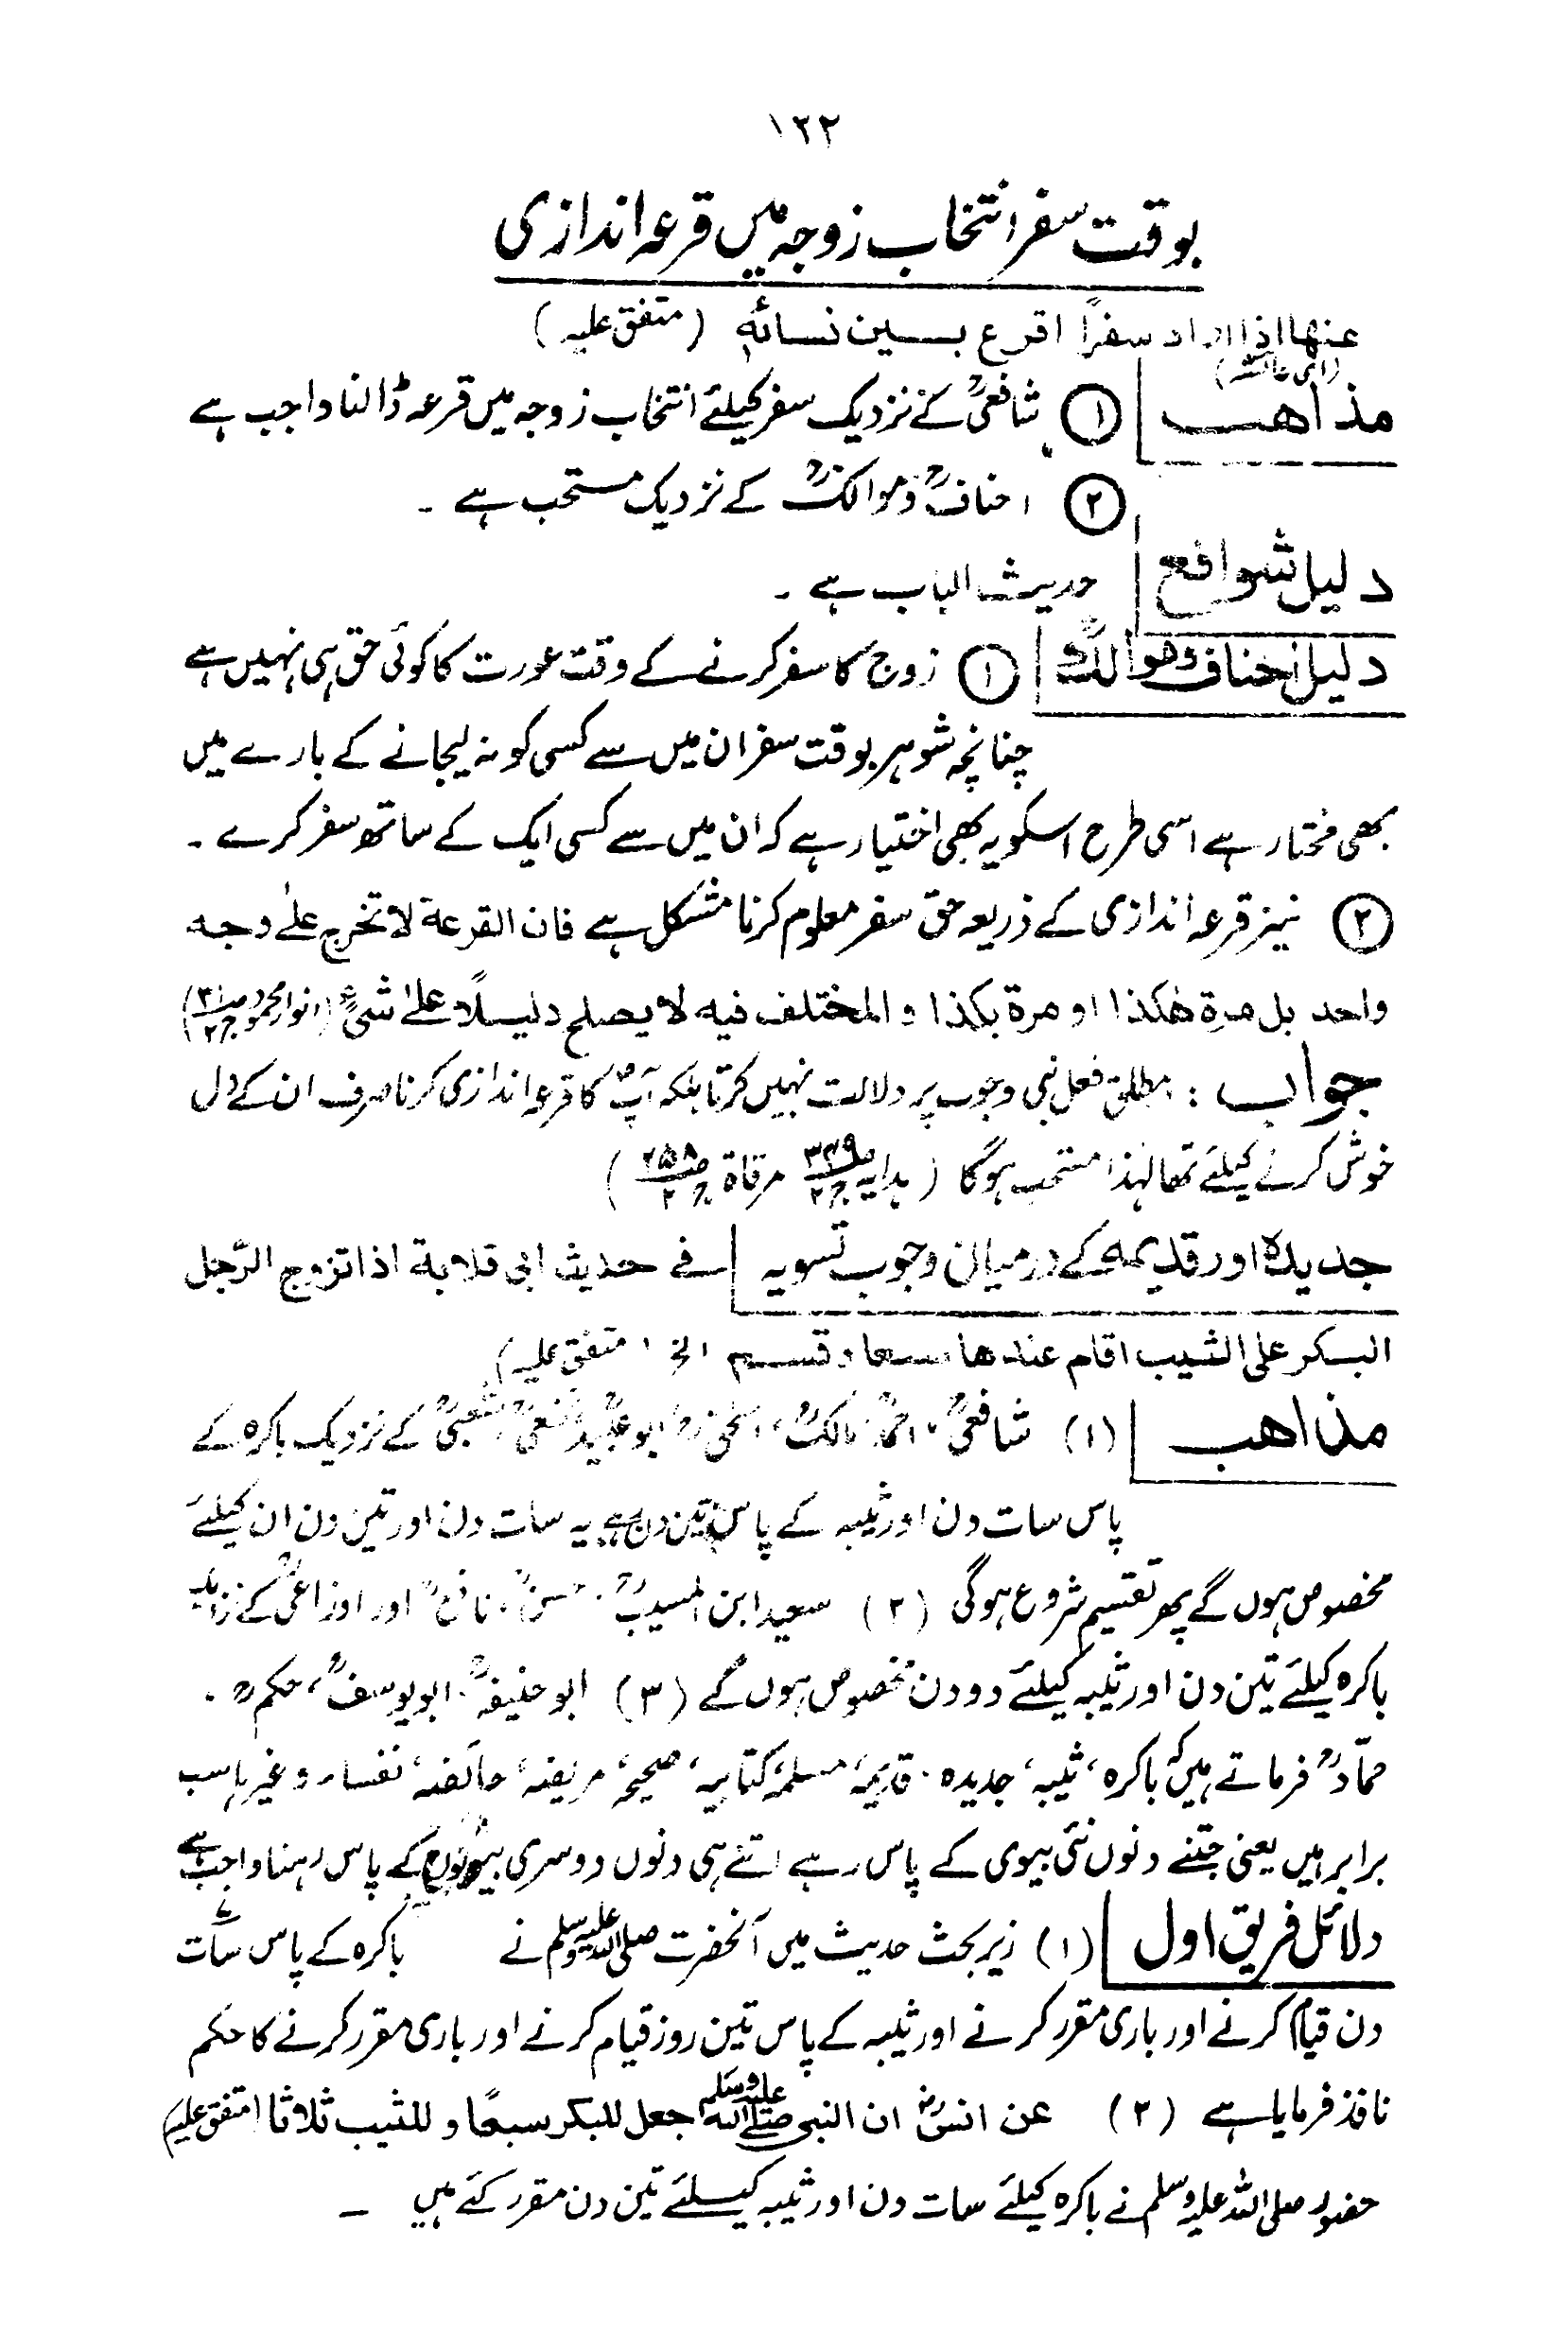 ۱۲۲
بوقت سفر انتخاب زوجہ میں قرعہ اندازی
عنها اذا اراد سفرًا اقرع بین نسائه (متفق علیہ)
(ای عائشہؓ)
مذاهب | ① شافعیؒ کے نزدیک سفر کیلئے انتخاب زوجہ میں قرعہ ڈالنا واجب ہے
② احنافؒ و موالکؒ کے نزدیک مستحب ہے ۔
دلیل شوافع | حدیث الباب ہے ۔
دلیل احناف و موالکؒ | ① زوج کا سفر کرنے کے وقت عورت کا کوئی حق ہی نہیں ہے
چنانچہ شوہر بوقت سفر ان میں سے کسی کو نہ لیجانے کے بارے میں
بھی مختار ہے اسی طرح اسکو یہ بھی اختیار ہے کہ ان میں سے کسی ایک کے ساتھ سفر کرے ۔
② نیز قرعہ اندازی کے ذریعہ حق سفر معلوم کرنا مشکل ہے فان القرعة لا تخرج علیٰ وجه
واحد بل مرة هٰکذا او مرة بکذا و المختلف فیه لا یصلح دلیلًا علیٰ شیٔ (انوار محمود
جواب : مطلق فعل نبی وجوب پر دلالت نہیں کرتا بلکہ آپؐ کا قرعہ اندازی کرنا صرف ان کے دل
خوش کرنے کیلئے تھا لہٰذا مستحب ہوگا (ہدایہ ص۳۴۹ ج۲ مرقاة ص۲۵۸ ج۲)
جدیدہ اور قدیمہ کے درمیان وجوب تسویہ | فے حدیث ابی قلابة اذا تزوج الرّجل
البکر علی الثیب اقام عندها سبعا و قسم الخ (متفق علیہ)
مذاهب | (۱) شافعیؒ، احمدؒ، مالکؒ، اسحٰقؒ، ابو عبیدؒ، نخعیؒ، شعبیؒ کے نزدیک باکرہ کے
پاس سات دن اور ثیبہ کے پاس تین دن ہے یہ سات دن اور تین دن ان کیلئے
مخصوص ہوں گے پھر تقسیم شروع ہوگی (۲) سعید ابن المسیبؒ، حسنؒ، نافعؒ اور اوزاعیؒ کے نزدیک
باکرہ کیلئے تین دن اور ثیبہ کیلئے دو دن مخصوص ہوں گے (۳) ابو حنیفہؒ، ابو یوسفؒ، حکمؒ،
حمّادؒ فرماتے ہیں کہ باکرہ، ثیبہ، جدیدہ، قدیمہ، مسلمہ، کتابیہ، صحیحہ، مریضہ، حائضہ، نفساء وغیرہا سب
برابر ہیں یعنی جتنے دنوں نئی بیوی کے پاس رہے اتنے ہی دنوں دوسری بیویوں کے پاس رہنا واجب ہے
دلائل فریق اول | (۱) زیر بحث حدیث میں آنحضرت صلی اللہ علیہ وسلم نے باکرہ کے پاس سات
دن قیام کرنے اور باری مقرر کرنے اور ثیبہ کے پاس تین روز قیام کرنے اور باری مقرر کرنے کا حکم
نافذ فرمایا ہے (۲) عن انسؓ ان النبی صلی اللہ علیہ وسلم جعل للبکر سبعًا و للثیب ثلاثا (متفق علیہ)
حضور صلی اللہ علیہ وسلم نے باکرہ کیلئے سات دن اور ثیبہ کیلئے تین دن مقرر کئے ہیں ۔